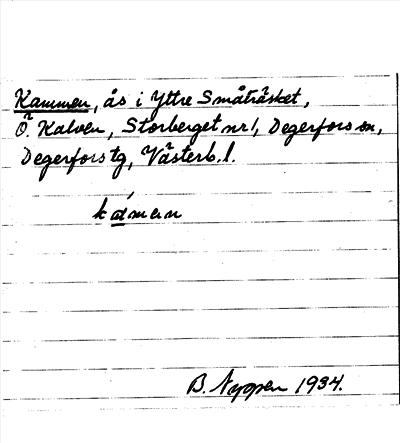 Kammen, ås i Yttre Småträsket,
Ö. Kalven, Storberget nr 1, Degerfors sn,
Degerfors tg, Västerb. l.
B. 1934.